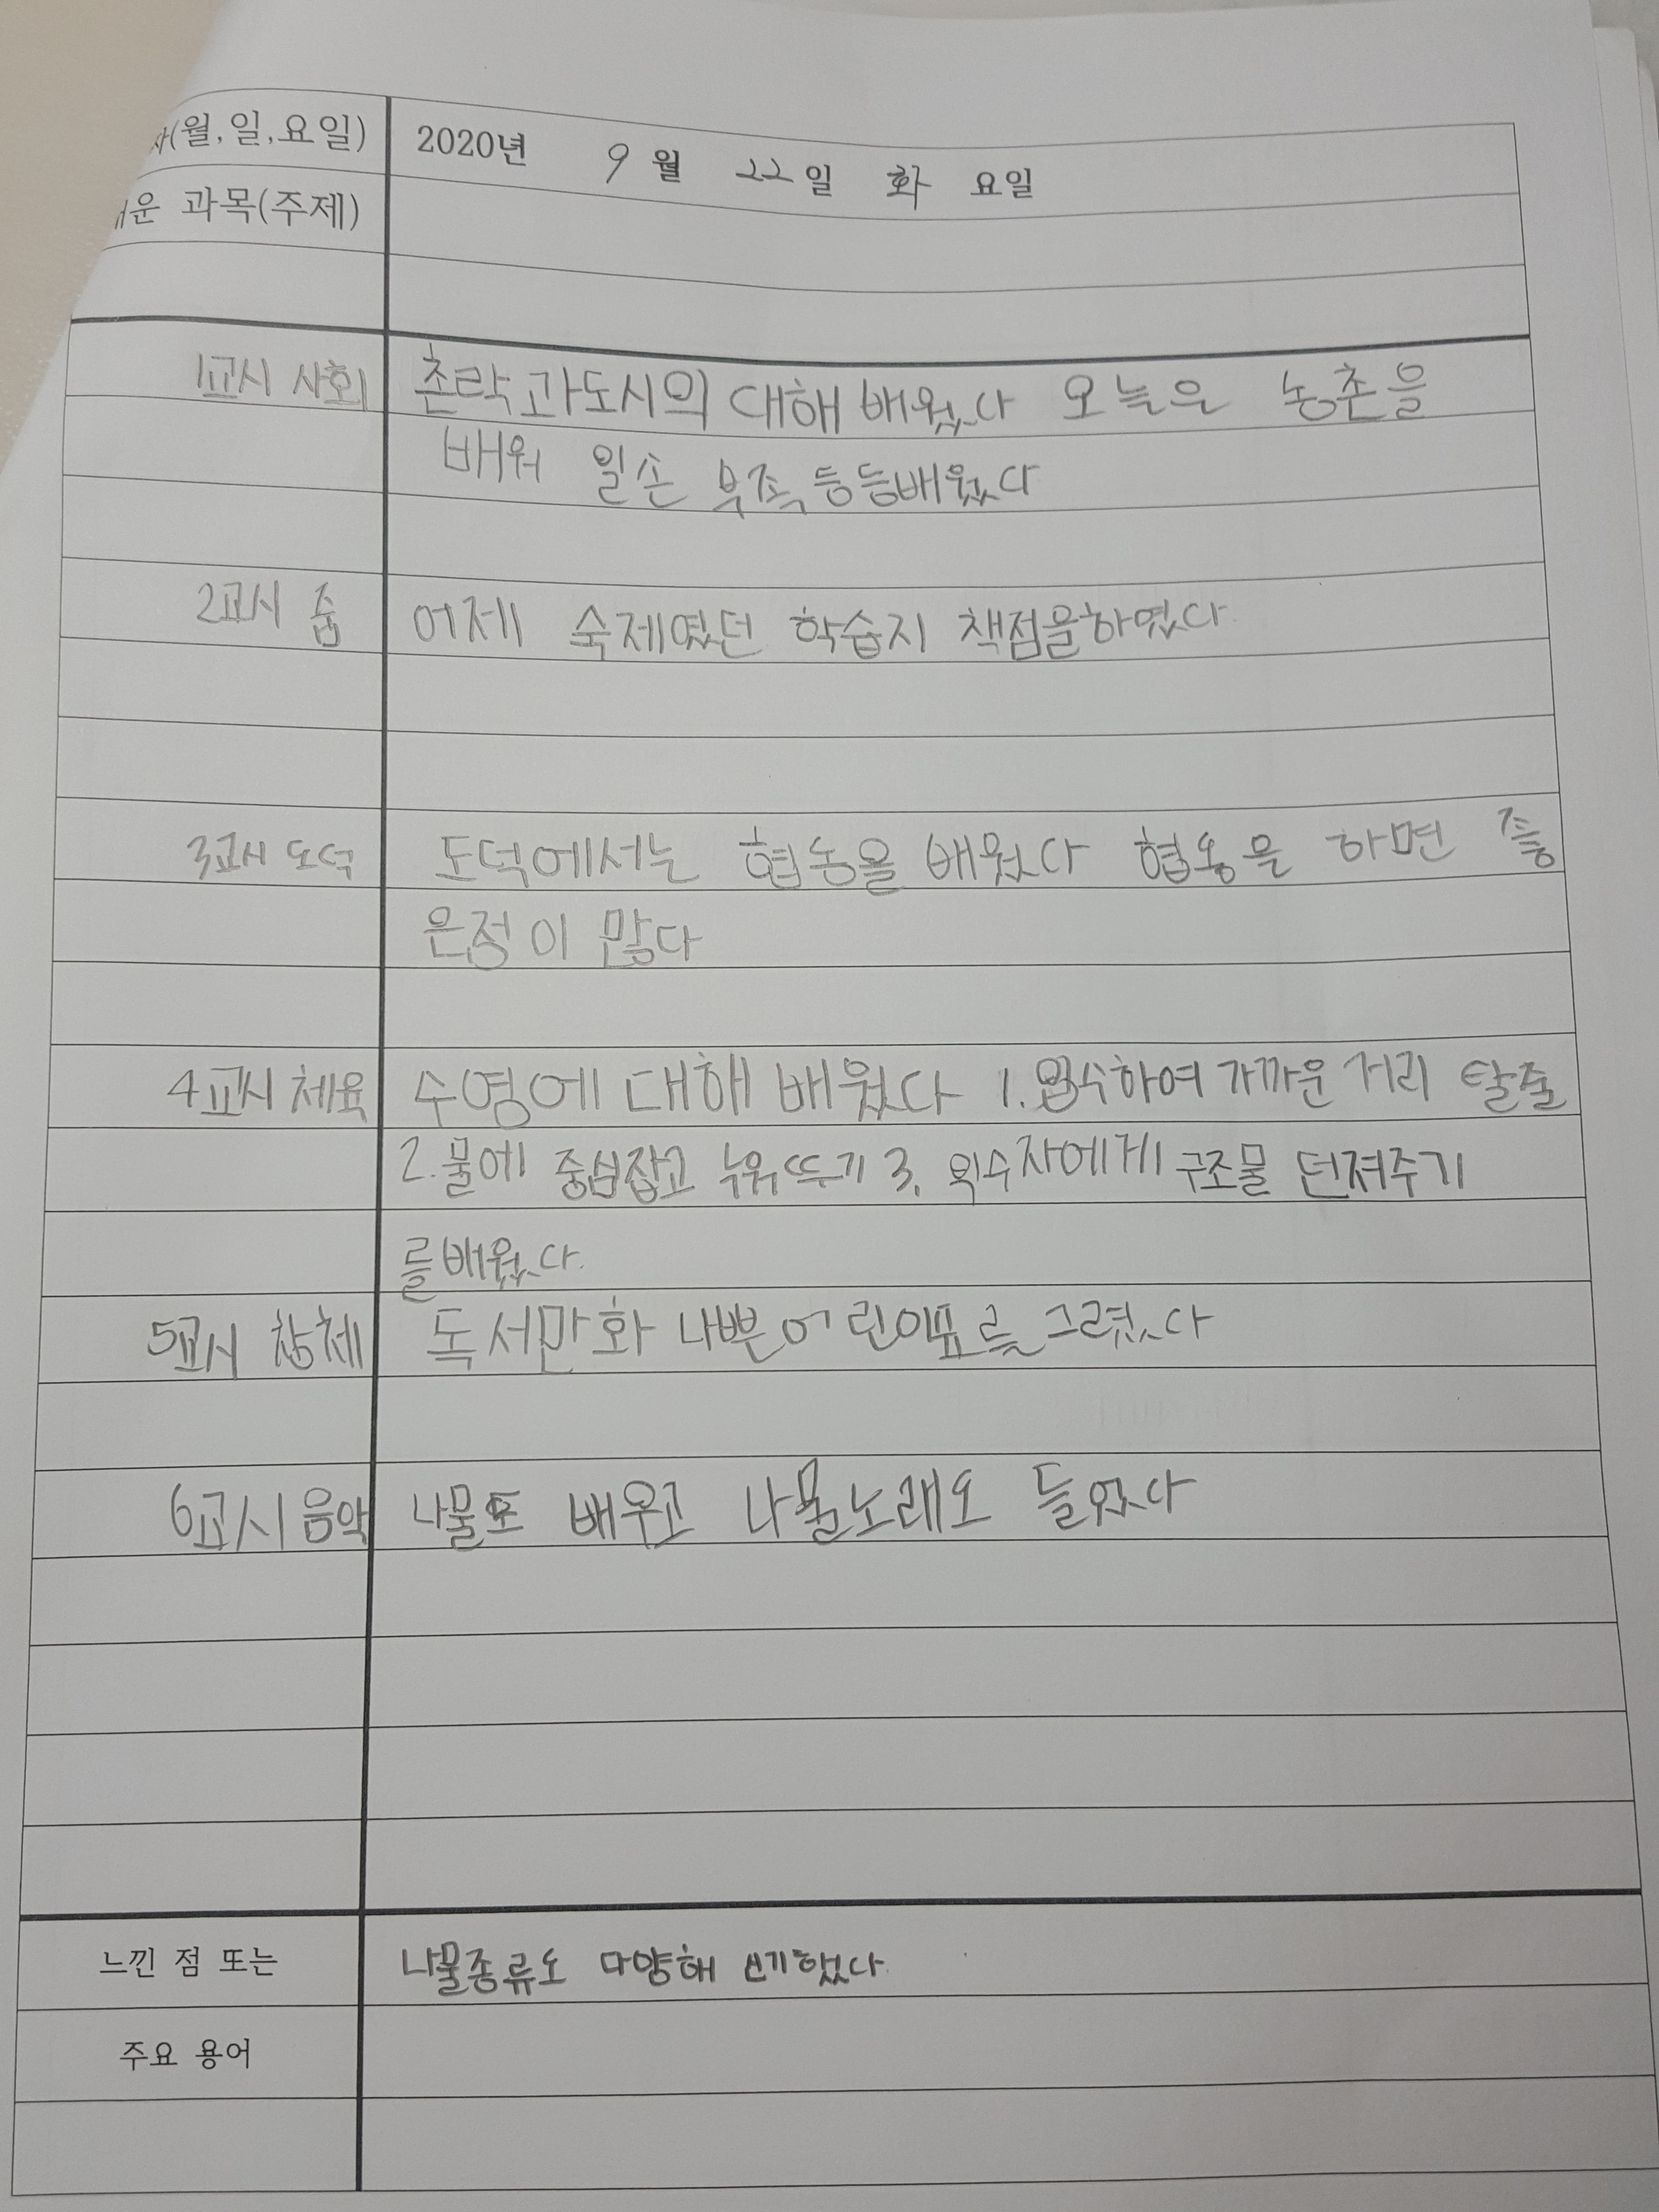 자(월,일,요일) 2020년 9월 22일 화 요일
배운 과목(주제)
1교시 사회 촌락과도시의 대해 배웠다 오늘은 농촌을
배워 일손 부족 등등배웠다
2교시 줌 어제 숙제였던 학습지 책점을하였다.
3교시 도덕 도덕에서는 협동을 배웠다 협동을 하면 좋
은점이 많다
4교시 체육 수영에 대해 배웠다 1. 입수하여 가까운 거리 탈출
2. 물에 중심잡고 누워뜨기 3. 익수자에게 구조물 던져주기
를배웠다.
5교시 창체 독서만화 나쁜어린이표를 그렸다
6교시 음악 나물도 배우고 나물노래도 들었다
느낀 점 또는 나물종류도 다양해 신기했다.
주요 용어